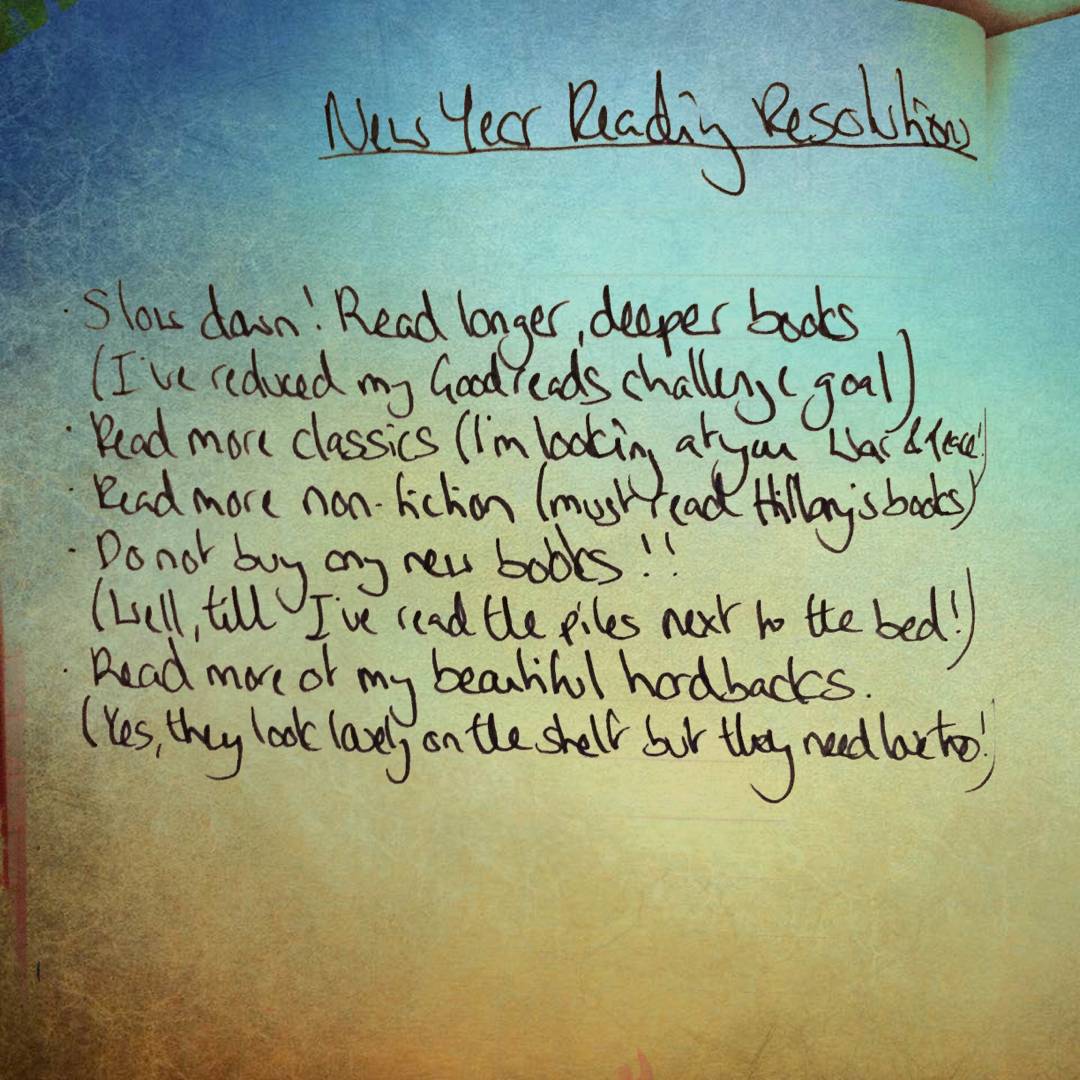 New Year Reading Resolutions
· Slow down! Read longer, deeper books
(I've reduced my Goodreads challenge goal)
· Read more classics (I'm looking at you War & Peace!)
· Read more non-fiction (must read Hillary's books)
· Do not buy any new books!!
(Well, till I've read the piles next to the bed!)
· Read more of my beautiful hardbacks.
(Yes, they look lovely on the shelf but they need love too!)